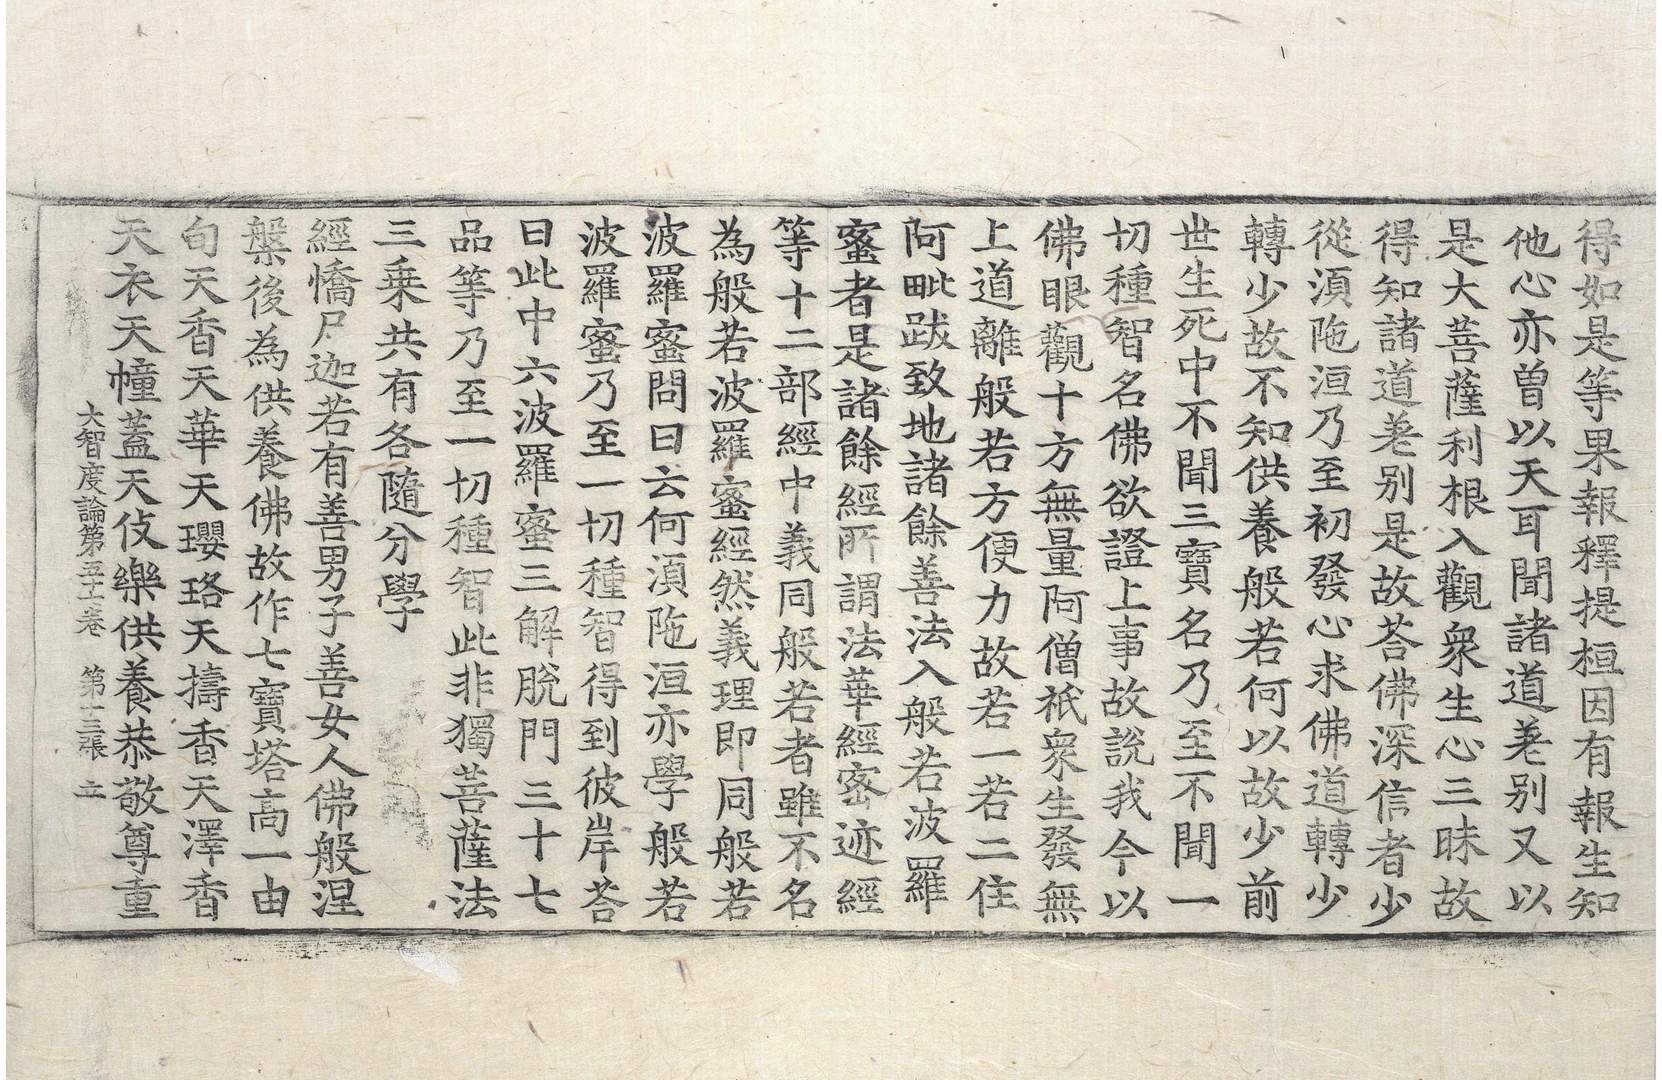 得如是等果報釋提桓因有報生知
他心亦曽以天耳聞諸道差别又以
是大菩薩利根入觀衆生心三昧故
得知諸道差别是故荅佛深信者少
從湏陁洹乃至初發心求佛道轉少
轉少故不知供養般若何以故少前
世生死中不聞三寶名乃至不聞一
切種智名佛欲證上事故說我今以
佛眼觀十方無量阿僧祇衆生發無
上道離般若方便力故若一若二住
阿毗跋致地諸餘善法入般若波羅
蜜者是諸餘經所謂法華經密迹經
等十二部經中義同般若者雖不名
為般若波羅蜜經然義理即同般若
波羅蜜問曰云何湏陁洹亦學般若
波羅蜜乃至一切種智得到彼岸荅
曰此中六波羅蜜三解脫門三十七
品等乃至一切種智此非獨菩薩法
三乗共有各隨分學
經憍尸迦若有善男子善女人佛般涅
槃後為供養佛故作七寶塔高一由
旬天香天華天瓔珞天擣香天澤香
天衣天幢蓋天伎樂供養恭敬尊重
大智度論第五十卷　第十三張　立